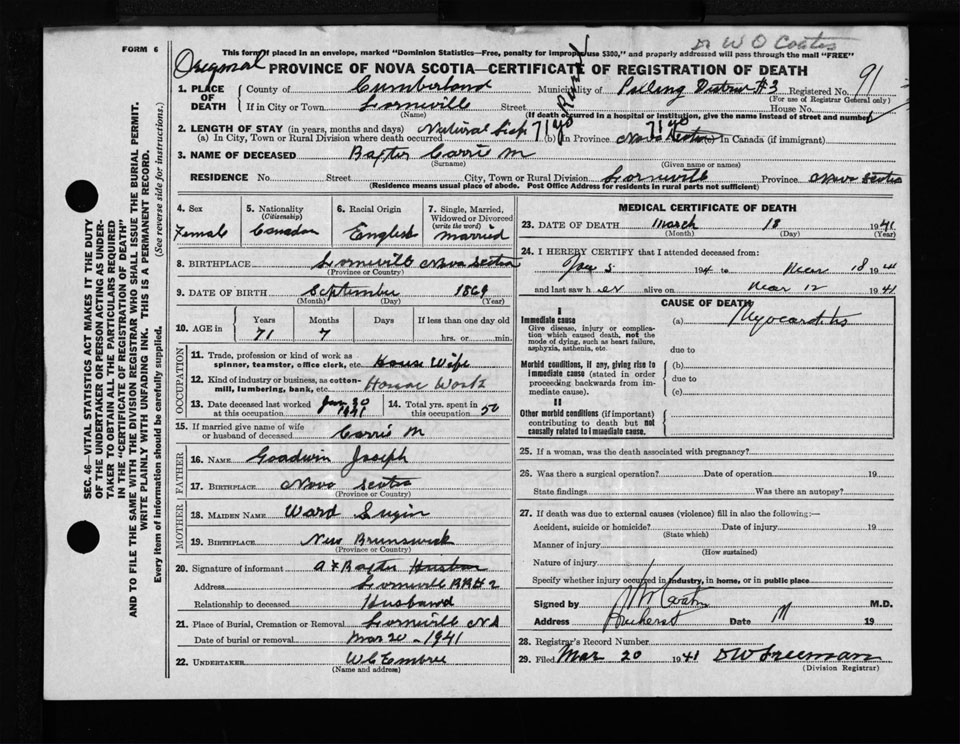 FORM 6
This form if placed in an envelope, marked "Dominion Statistics—Free, penalty for improper use $300," and properly addressed will pass through the mail "FREE"
Dr W O Coates
Original
PROVINCE OF NOVA SCOTIA—CERTIFICATE OF REGISTRATION OF DEATH
1. PLACE OF DEATH
County of Cumberland Municipality of District #3 Registered No. 91
(For use of Registrar General only)
If in City or Town Lornville Street House No.
(Name) (If death occurred in a hospital or institution, give the name instead of street and number)
Rural
2. LENGTH OF STAY (in years, months and days)
(a) In City, Town or Rural Division where death occurred 71 yo (b) In Province 71 yo (c) In Canada (if immigrant)
3. NAME OF DECEASED Baxter Carrie M
(Surname) (Given name or names)
RESIDENCE No. Street City, Town or Rural Division Lornville Province Nova Scotia
(Residence means usual place of abode. Post Office Address for residents in rural parts not sufficient)
4. Sex Female
5. Nationality (Citizenship) Canadian
6. Racial Origin English
7. Single, Married, Widowed or Divorced (write the word) Married
8. BIRTHPLACE Lornville Nova Scotia
(Province or Country)
9. DATE OF BIRTH September 1869
(Month) (Day) (Year)
10. AGE in Years Months Days If less than one day old
71 7 hrs. or min.
OCCUPATION
11. Trade, profession or kind of work as spinner, teamster, office clerk, etc. House Wife
12. Kind of industry or business, as cotton-mill, lumbering, bank, etc. House Work
13. Date deceased last worked at this occupation Jan 20 1941
14. Total yrs. spent in this occupation 50
15. If married give name of wife or husband of deceased Carrie M
FATHER
16. NAME Goodwin Joseph
17. BIRTHPLACE Nova Scotia
(Province or Country)
MOTHER
18. MAIDEN NAME Ward
19. BIRTHPLACE New Brunswick
(Province or Country)
20. Signature of informant A F Baxter Husban
Address Lornville RR# 2
Relationship to deceased Husband
21. Place of Burial, Cremation or Removal Lornville N.S
Date of burial or removal Mar 20 - 1941
22. UNDERTAKER W C Embree
(Name and address)
MEDICAL CERTIFICATE OF DEATH
23. DATE OF DEATH March 18 1941
(Month) (Day) (Year)
24. I HEREBY CERTIFY that I attended deceased from:
194 to Mar 18 1941
and last saw her alive on Mar 12 1941
CAUSE OF DEATH
I
Immediate cause (a) Myocarditis
Give disease, injury or complication which caused death, not the mode of dying, such as heart failure, asphyxia, asthenia, etc.
due to
Morbid conditions, if any, giving rise to immediate cause (stated in order proceeding backwards from immediate cause).
(b)
due to
(c)
II
Other morbid conditions (if important) contributing to death but not causally related to immediate cause.
25. If a woman, was the death associated with pregnancy?
26. Was there a surgical operation? Date of operation 19
State findings Was there an autopsy?
27. If death was due to external causes (violence) fill in also the following:—
Accident, suicide or homicide? Date of injury 19
(State which)
Manner of injury
(How sustained)
Nature of injury
Specify whether injury occurred in industry, in home, or in public place
Signed by M.D.
Address Amherst Date M 19
28. Registrar's Record Number
29. Filed Mar 20 1941 D W Freeman
(Division Registrar)
SEC. 46—VITAL STATISTICS ACT MAKES IT THE DUTY
OF THE UNDERTAKER OR PERSON ACTING AS UNDER-
TAKER TO OBTAIN ALL THE PARTICULARS REQUIRED
IN THE "CERTIFICATE OF REGISTRATION OF DEATH"
AND TO FILE THE SAME WITH THE DIVISION REGISTRAR WHO SHALL ISSUE THE BURIAL PERMIT.
WRITE PLAINLY WITH UNFADING INK. THIS IS A PERMANENT RECORD.
Every item of information should be carefully supplied. (See reverse side for instructions.)